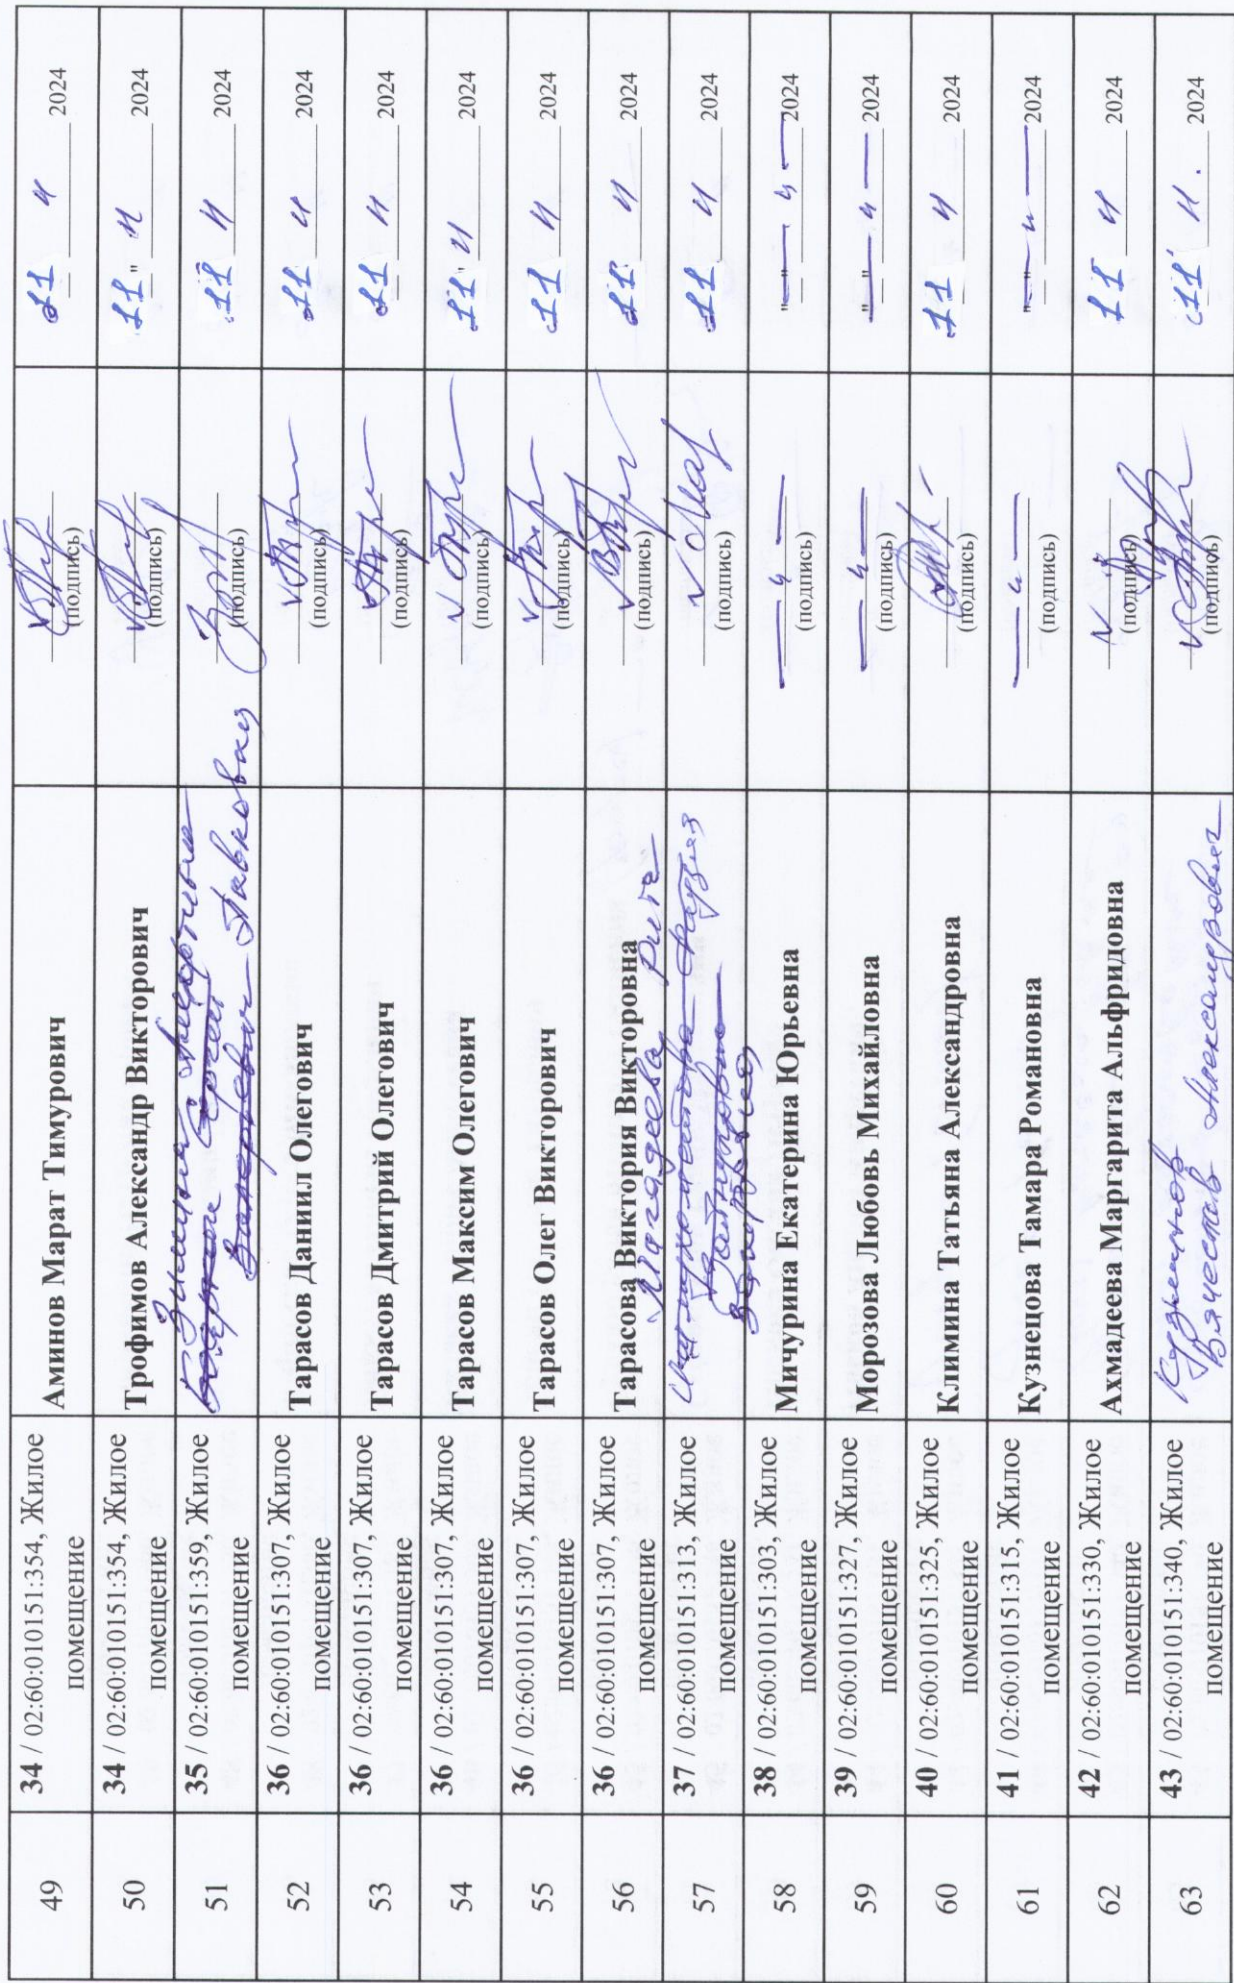 49 34 / 02:60:010151:354, Жилое помещение Аминов Марат Тимурович (подпись) 11 " 2024
50 34 / 02:60:010151:354, Жилое помещение Трофимов Александр Викторович (подпись) 11 " 2024
51 35 / 02:60:010151:359, Жилое помещение Зимина Сергей Валерьевич Павловна (подпись) 11 " 2024
52 36 / 02:60:010151:307, Жилое помещение Тарасов Даниил Олегович (подпись) 11 " 2024
53 36 / 02:60:010151:307, Жилое помещение Тарасов Дмитрий Олегович (подпись) 11 " 2024
54 36 / 02:60:010151:307, Жилое помещение Тарасов Максим Олегович (подпись) 11 " 2024
55 36 / 02:60:010151:307, Жилое помещение Тарасов Олег Викторович (подпись) 11 " 2024
56 36 / 02:60:010151:307, Жилое помещение Тарасова Виктория Викторовна (подпись) 11 " 2024
57 37 / 02:60:010151:313, Жилое помещение Магадеева Рита (подпись) 11 " 2024
58 38 / 02:60:010151:303, Жилое помещение Мичурина Екатерина Юрьевна — " — (подпись) — " — 2024
59 39 / 02:60:010151:327, Жилое помещение Морозова Любовь Михайловна — " — (подпись) — " — 2024
60 40 / 02:60:010151:325, Жилое помещение Климина Татьяна Александровна (подпись) 11 " 2024
61 41 / 02:60:010151:315, Жилое помещение Кузнецова Тамара Романовна — " — (подпись) — " — 2024
62 42 / 02:60:010151:330, Жилое помещение Ахмадеева Маргарита Альфридовна (подпись) 11 " 2024
63 43 / 02:60:010151:340, Жилое помещение Вячеслав Александрович (подпись) 11 " 2024